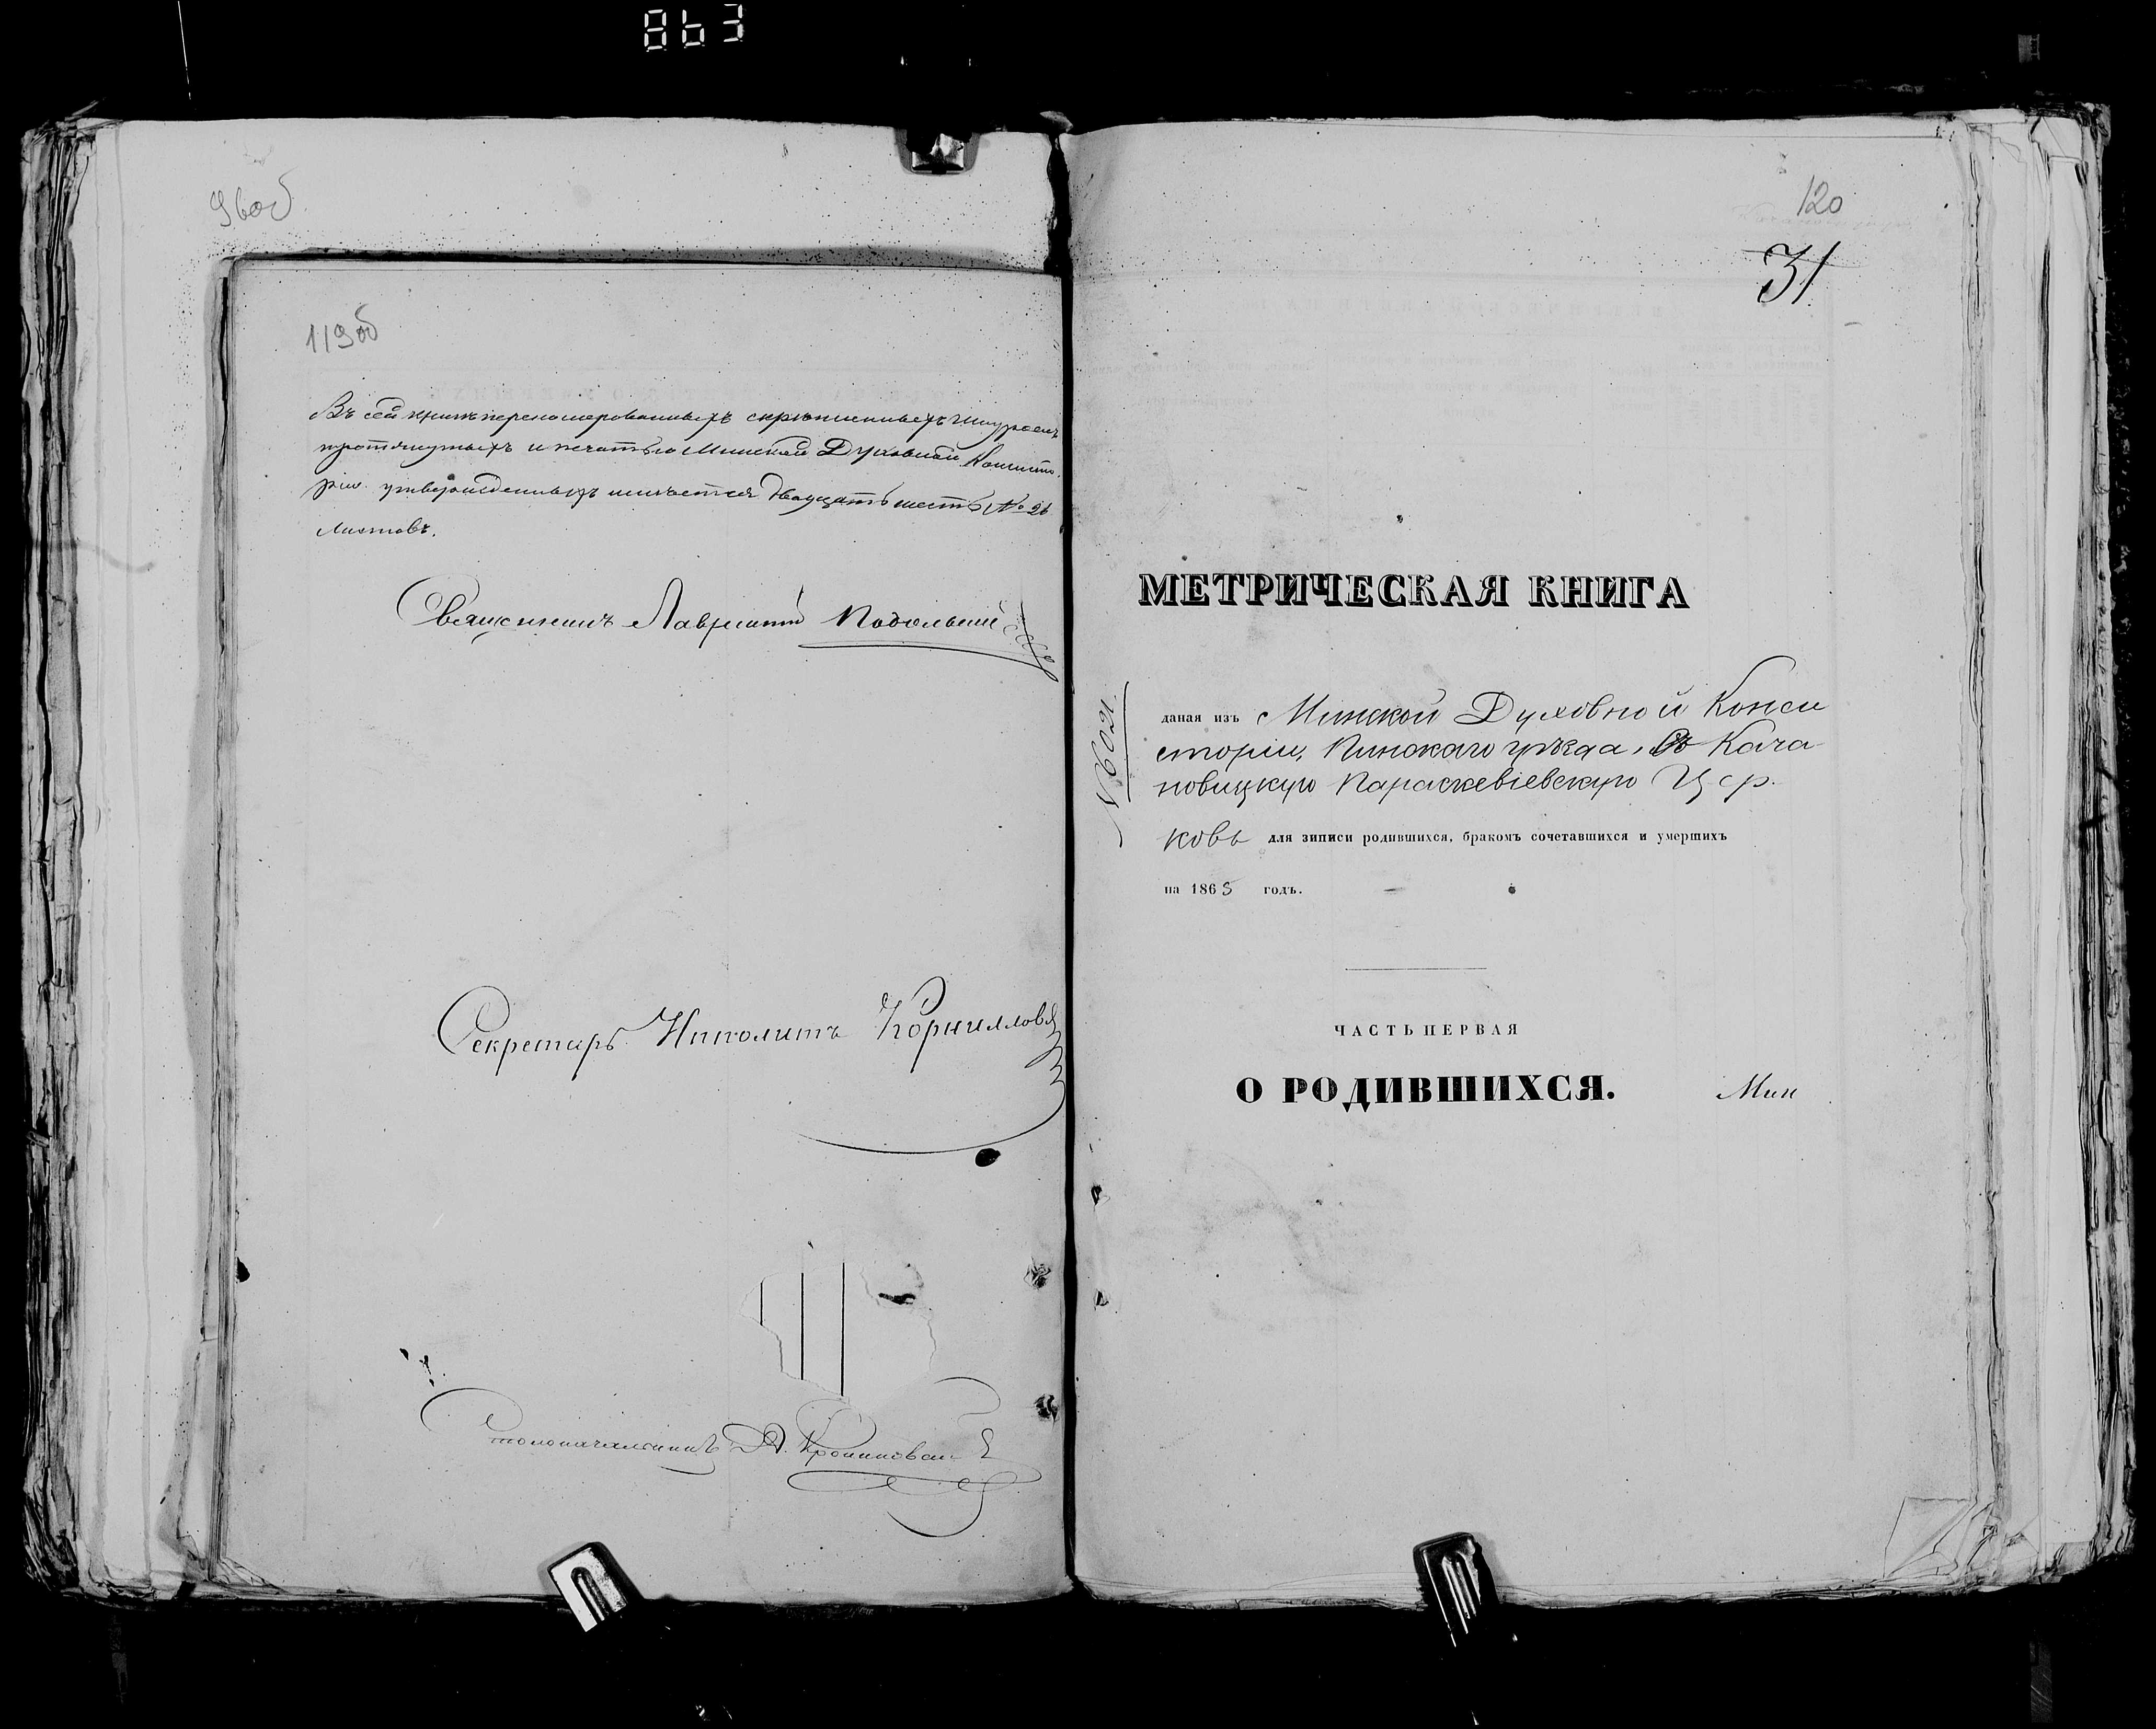 863
96об
119об
Въ сей книге перенумерованныхъ скрепленныхъ шнуромъ
протянутыхъ и печатью Минской Духовной Консисто
ріи утвержденныхъ имѣется двадцать шесть № 26
листовъ.
Священникъ Лаврентій Подольскій
Секретарь Иполитъ Корнилловъ
Столоначальникъ
120
31
МЕТРИЧЕСКАЯ КНИГА
№ 6021.
даная изъ Минской Духовной Конси
сторіи, Пинскаго уѣзда, въ Кача
новицкую Параскевіевскую Цер.
ковь для записи родившихся, бракомъ сочетавшихся и умершихъ
на 1865 годъ.
ЧАСТЬ ПЕРВАЯ
О РОДИВШИХСЯ.
Мин